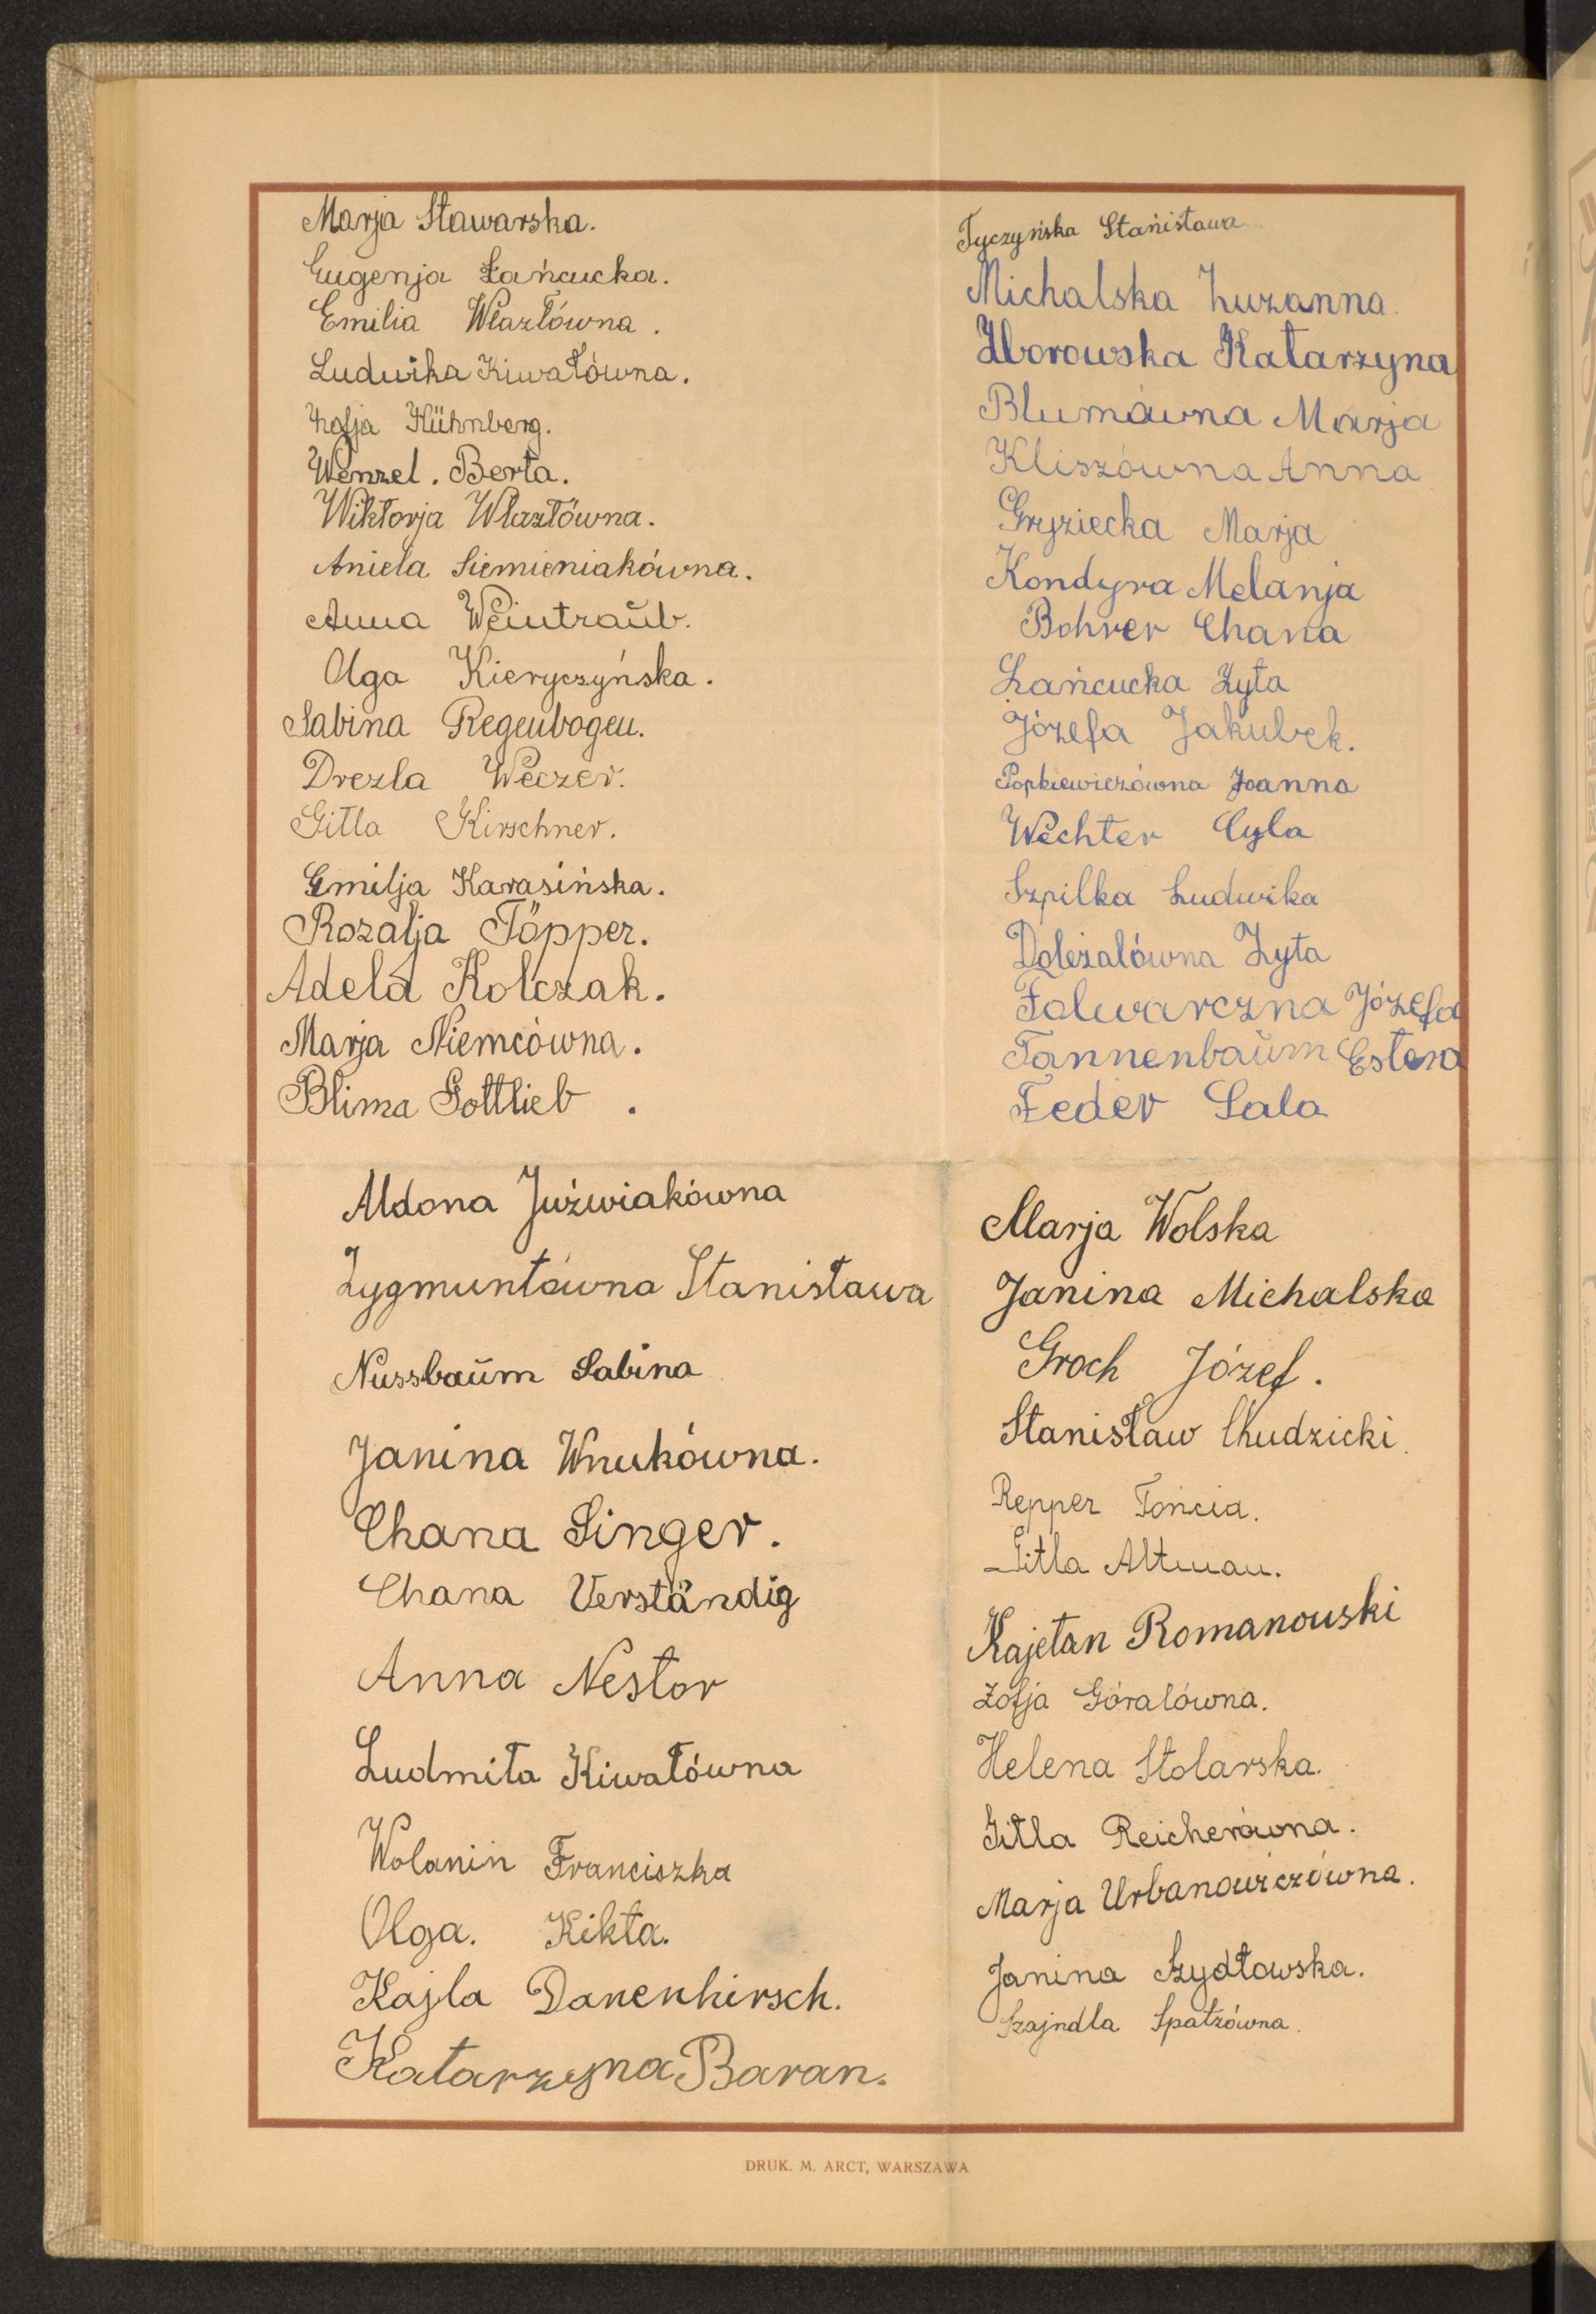 Marja Stawarska.
Eugenja Łańcucka.
Emilia Wlazłówna.
Ludwika Kiwałówna.
Zofja Kühnberg.
Wenzel. Berta.
Wiktorja Wlazłówna.
Aniela Siemieniakówna.
Anna Weintraub.
Olga Kieryczyńska.
Sabina Regenbogen.
Drezla Weczer.
Gitla Kirschner.
Emilja Karasińska.
Rozalja Töpper.
Adela Kolczak.
Marja Niemcówna.
Blima Gottlieb.
Aldona Juźwiakówna
Zygmuntówna Stanisława
Nussbaum Sabina
Janina Wnukówna.
Chana Singer.
Chana Verständig
Anna Nestor
Ludmiła Kiwałówna
Wolanin Franciszka
Olga. Kikta.
Kajla Danenhirsch.
Katarzyna Baran.
Tyczyńska Stanisława
Michalska Zuzanna.
Zborowska Katarzyna
Blumówna Marja
Kliszówna Anna
Gryziecka Marja
Kondyra Melanja
Bohrer Chana
Łańcucka Zyta
Józefa Jakubek.
Popkiewiczówna Joanna
Wechter Cyla
Szpilka Ludwika
Doleżalówna Zyta
Falwarczna Józefa
Tannenbaum Estera
Feder Sala
Marja Wolska
Janina Michalska
Groch Józef.
Stanisław Chudzicki.
Repper Tońcia.
Gitla Altman.
Kajetan Romanowski
Zofja Góralówna.
Helena Stolarska.
Gitla Reicherówna.
Marja Urbanowiczówna.
Janina Szydłowska.
Szajndla Spatzówna.
DRUK. M. ARCT, WARSZAWA